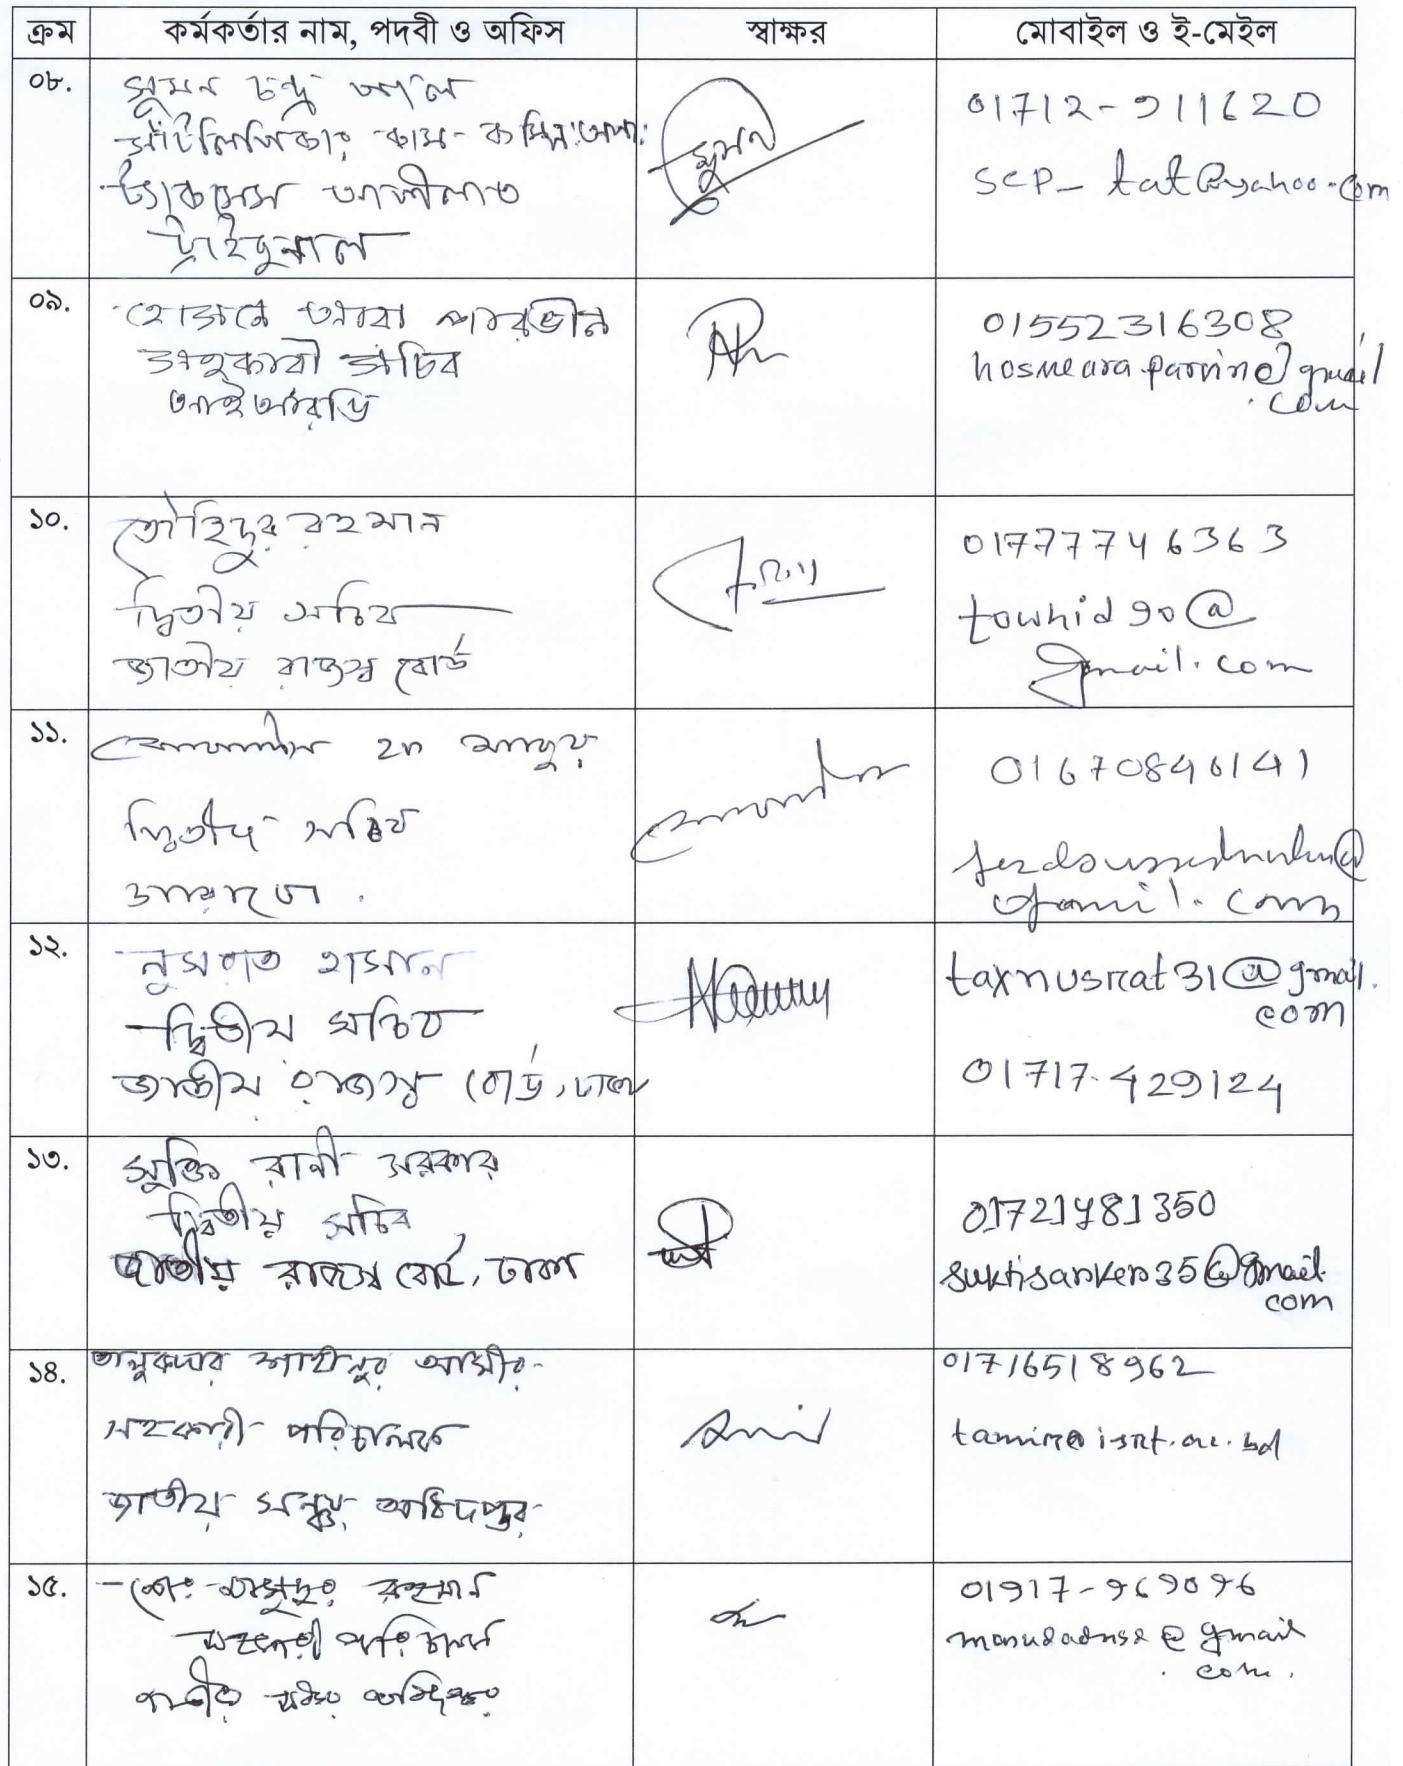 ক্রম কর্মকর্তার নাম, পদবী ও অফিস স্বাক্ষর মোবাইল ও ই-মেইল
০৮.
সুমন চন্দ্র পাল
সাঁটলিপিকার-কাম-কম্পি:অপা:
ট্যাকসেস আপীলাত
ট্রাইবুনাল
সুমন
01712-911620
scp_tat@yahoo.com
০৯.
হোসনে আরা পারভীন
সহকারী সচিব
আইআরডি
01552316308
hosneara parvin@gmail
.com
১০.
তৌহিদুর রহমান
দ্বিতীয় সচিব
জাতীয় রাজস্ব বোর্ড
01777746363
towhid90@
gmail.com
১১.
দ্বিতীয় সচিব
01670846141
১২.
নুসরাত হাসান
দ্বিতীয় সচিব
জাতীয় রাজস্ব বোর্ড, ঢাকা
taxnusrat31@gmail.
com
01717-429124
১৩.
সুক্তি রানী সরকার
দ্বিতীয় সচিব
জাতীয় রাজস্ব বোর্ড, ঢাকা
01721481350
suktisarker35@gmail.
com
১৪.
তালুকদার শাহীনুর আমীর
সহকারী পরিচালক
জাতীয় সঞ্চয় অধিদপ্তর
01716518962
tamir@isrt.ac.bd
১৫.
মোঃ মাসুদুর রহমান
সহকারী পরিচালক
জাতীয় সঞ্চয় অধিদপ্তর
01917-969096
@gmail
.com.